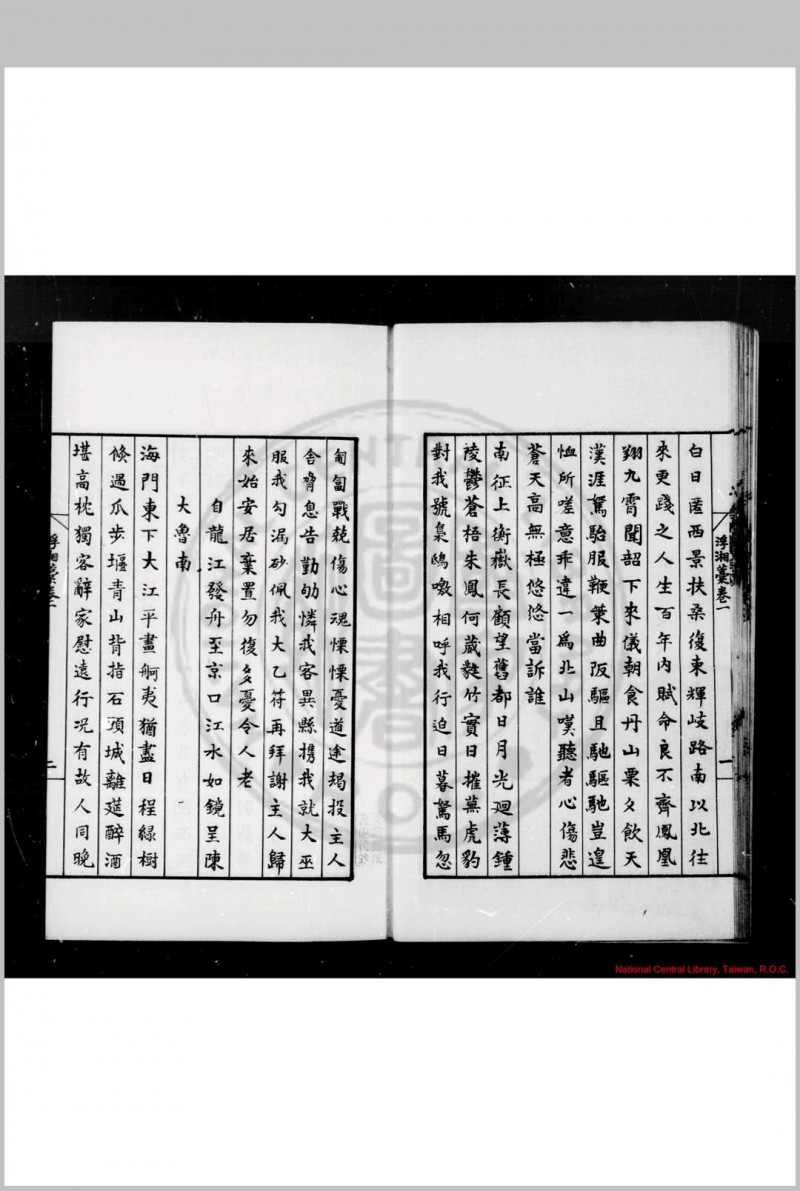 浮湘藁卷一
一
白日匿西景扶桑復東輝岐路南以北往
來更踐之人生百年內賦命良不齊鳳凰
翔九霄聞韶下來儀朝食丹山粟夕飲天
漢涯駑駘服鞭箠曲阪驅且馳驅馳豈遑
恤所嗟意乖違一為北山嘆聽者心傷悲
蒼天高無極悠悠當訴誰
南征上衡嶽長顧望舊都日月光迴薄鍾
陵鬱蒼梧朱鳳何葳蕤竹實日摧蕪虎豹
對我號梟鴟嗷相呼我行迫日暮駑馬忽
匍匐戰兢傷心魂慄慄憂道途朅投主人
舍脅息告勤劬憐我客異縣携我就大巫
服我勾漏砂佩我大乙符再拜謝主人歸
來始安居棄置勿復多憂令人老
自龍江發舟至京口江水如鏡呈陳
大魯南
海門東下大江平畫舸夷猶盡日程綠樹
倏過瓜步堰青山背指石頭城離筵醉酒
堪高枕獨客辭家慰遠行况有故人同晚
浮湘藁卷一
二
National Central Library, Taiwan, R.O.C.